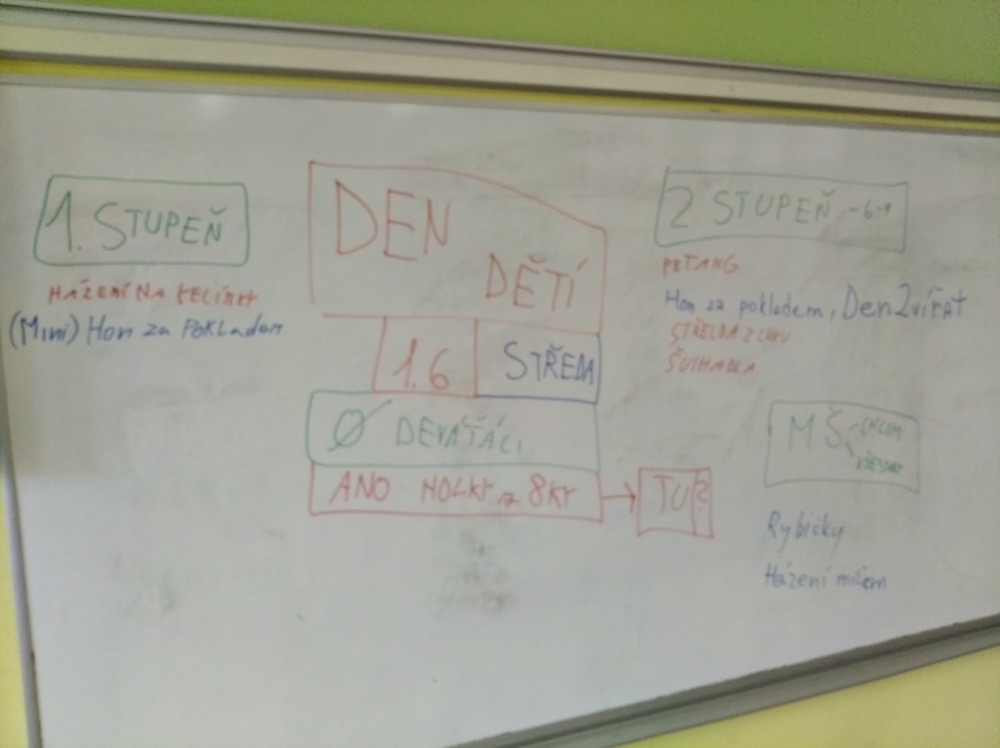 1. STUPEŇ
HÁZENÍ NA KELÍMKY
(Mini) Hon za Pokladem
DEN
DĚTÍ
1.6.
STŘEDA
Ø DEVÁŤÁCI
ANO HOLKY z 8KY → TU?
2. STUPEŇ - 6-9
PETANG
Hon za pokladem, Den Zvířat
STŘELBA Z LUKU
ŠVIHADLA
MŠ
Rybičky
Házení míčem